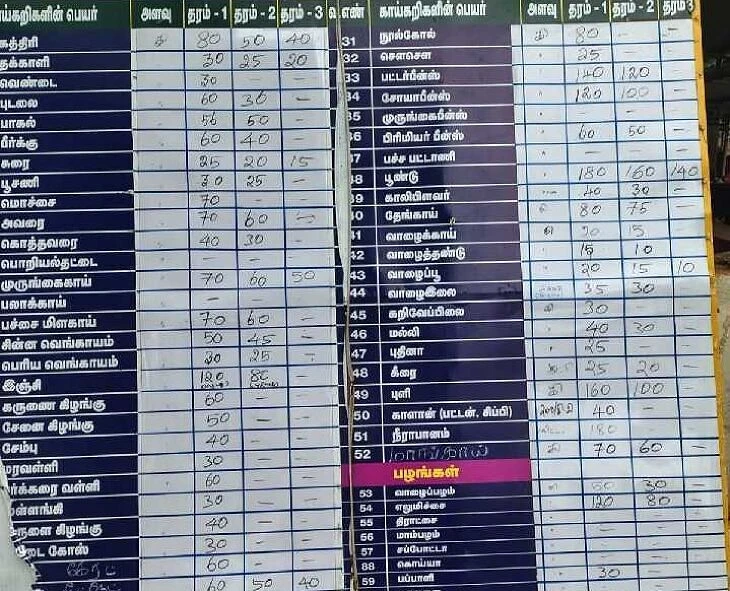 காய்கறிகளின் பெயர் அளவு தரம் - 1 தரம் - 2 தரம் - 3
கத்திரி 80 50 40
தக்காளி 30 25 20
வெண்டை 30 —
புடலை 60 30 —
பாகல் 50 —
பீர்க்கு 60 40 —
சுரை 25 20 15
பூசணி 30 25 —
மொச்சை 70 — —
அவரை 70 60
கொத்தவரை 40 30 —
பொறியல்தட்டை — —
முருங்கைகாய் 70 60 50
பலாக்காய் — — —
பச்சை மிளகாய் 70 60 —
சின்ன வெங்காயம் 50 45 —
பெரிய வெங்காயம் 25 —
இஞ்சி 120 80 —
கருணை கிழங்கு 60 — —
சேனை கிழங்கு 50 — —
சேம்பு 40 — —
மரவள்ளி 30 — —
ர்க்கரை வள்ளி 60 — —
ள்ளங்கி 30 — —
ருளை கிழங்கு 40 — —
டை கோஸ் 30 — —
60 — —
60 50 40
வ.எண் காய்கறிகளின் பெயர் அளவு தரம் - 1 தரம் - 2 தரம் 3
31 நூல்கோல் கி 80 — —
32 சௌசௌ 25 — —
33 பட்டர்பீன்ஸ் 140 120 —
34 சோயாபீன்ஸ் 120 100 —
35 முருங்கைபீன்ஸ் — — —
36 பிரிமியர் பீன்ஸ் 60 50 —
37 பச்ச பட்டாணி — — —
38 பூண்டு 180 160 140
39 காலிபிளவர் 40 30 —
40 தேங்காய் 80 75 —
41 வாழைக்காய் 20 15 —
42 வாழைத்தண்டு 15 10
43 வாழைப்பூ 20 15 10
44 வாழைஇலை 35 30 —
45 கறிவேப்பிலை 30 — —
46 மல்லி 40 30 —
47 புதினா 25 — —
48 கீரை 25 20 —
49 புளி கி 160 100 —
50 காளான் (பட்டன், சிப்பி) 40 — —
51 நீராபானம் 180 — —
52 மாங்காய் கி 70 60 —
பழங்கள்
53 வாழைப்பழம் 30 —
54 எலுமிச்சை 120 80 —
55 திராட்சை — — —
56 மாம்பழம் — — —
57 சப்போட்டா — — —
88 கொய்யா — — —
59 பப்பாளி 30 — —